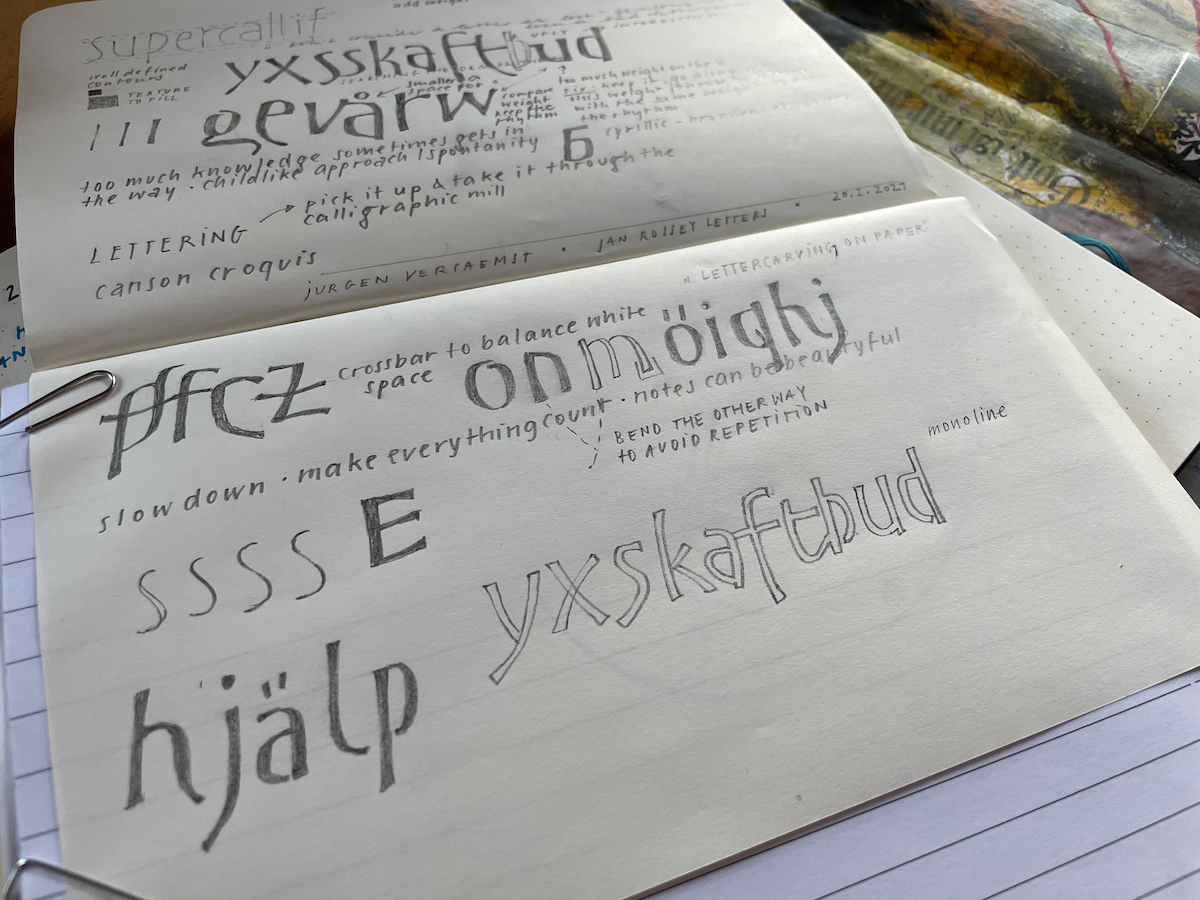 add weight
supercallif
well defined
contours
yxsskaftbud
TEXTURE
TO FILL
smaller
space for
gevårw
compare
weight
keep the
rhythm
too much weight on the
with the same weight
the rhythm
too much knowledge sometimes gets in
the way · childlike approach / spontanity
Б
cyrillic -
pick it up & take it through the
calligraphic mill
LETTERING
canson croquis
jURGEN VERCAEMST · JAN ROSSEY LETTERS · 20.2.2021
" LETTERCARVING ON PAPER"
pfcz
crossbar to balance white
space
onmöiqhj
slow down · make everything count · notes can be beautyful
BEND THE OTHER WAY
TO AVOID REPETITION
monoline
SSSS E
yxskaftbud
hjälp